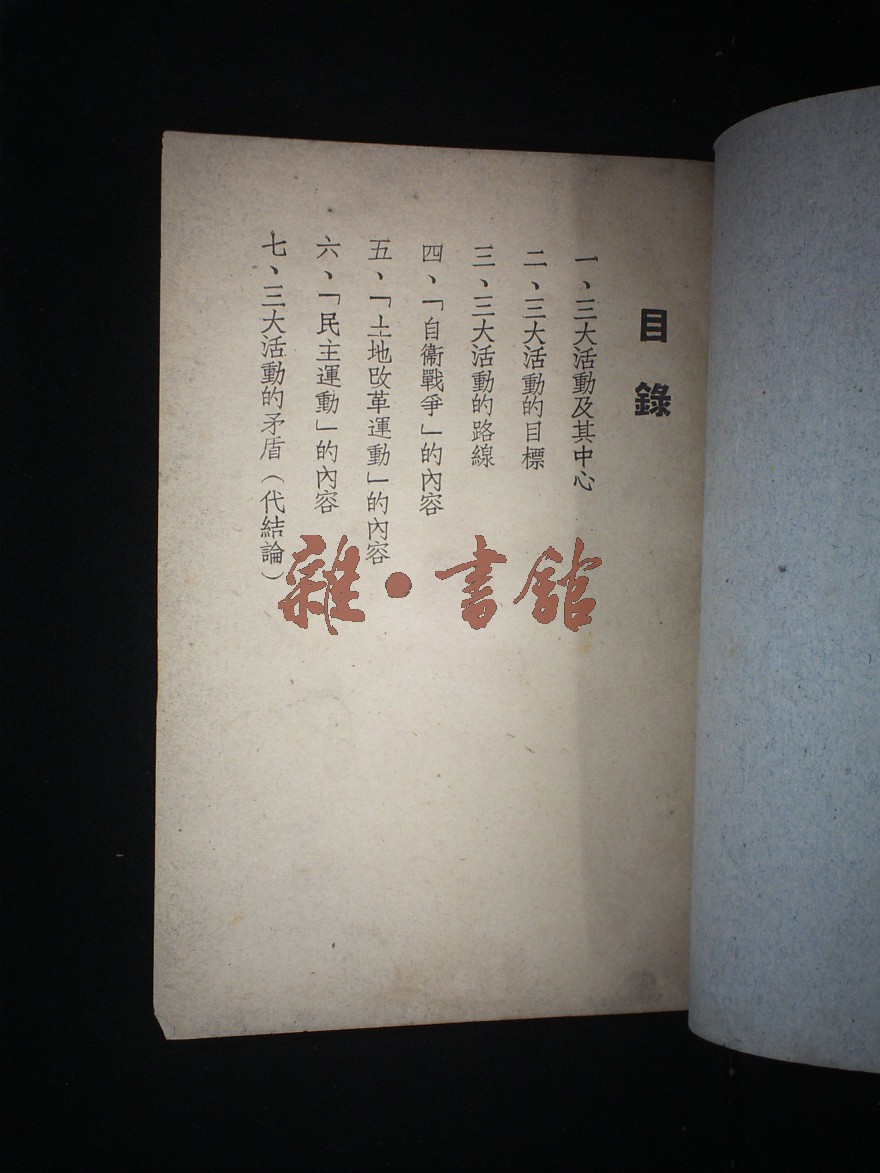 目錄
一、三大活動及其中心
二、三大活動的目標
三、三大活動的路線
四、「自衞戰爭」的內容
五、「土地改革運動」的內容
六、「民主運動」的內容
七、三大活動的矛盾（代結論）
雜·書館